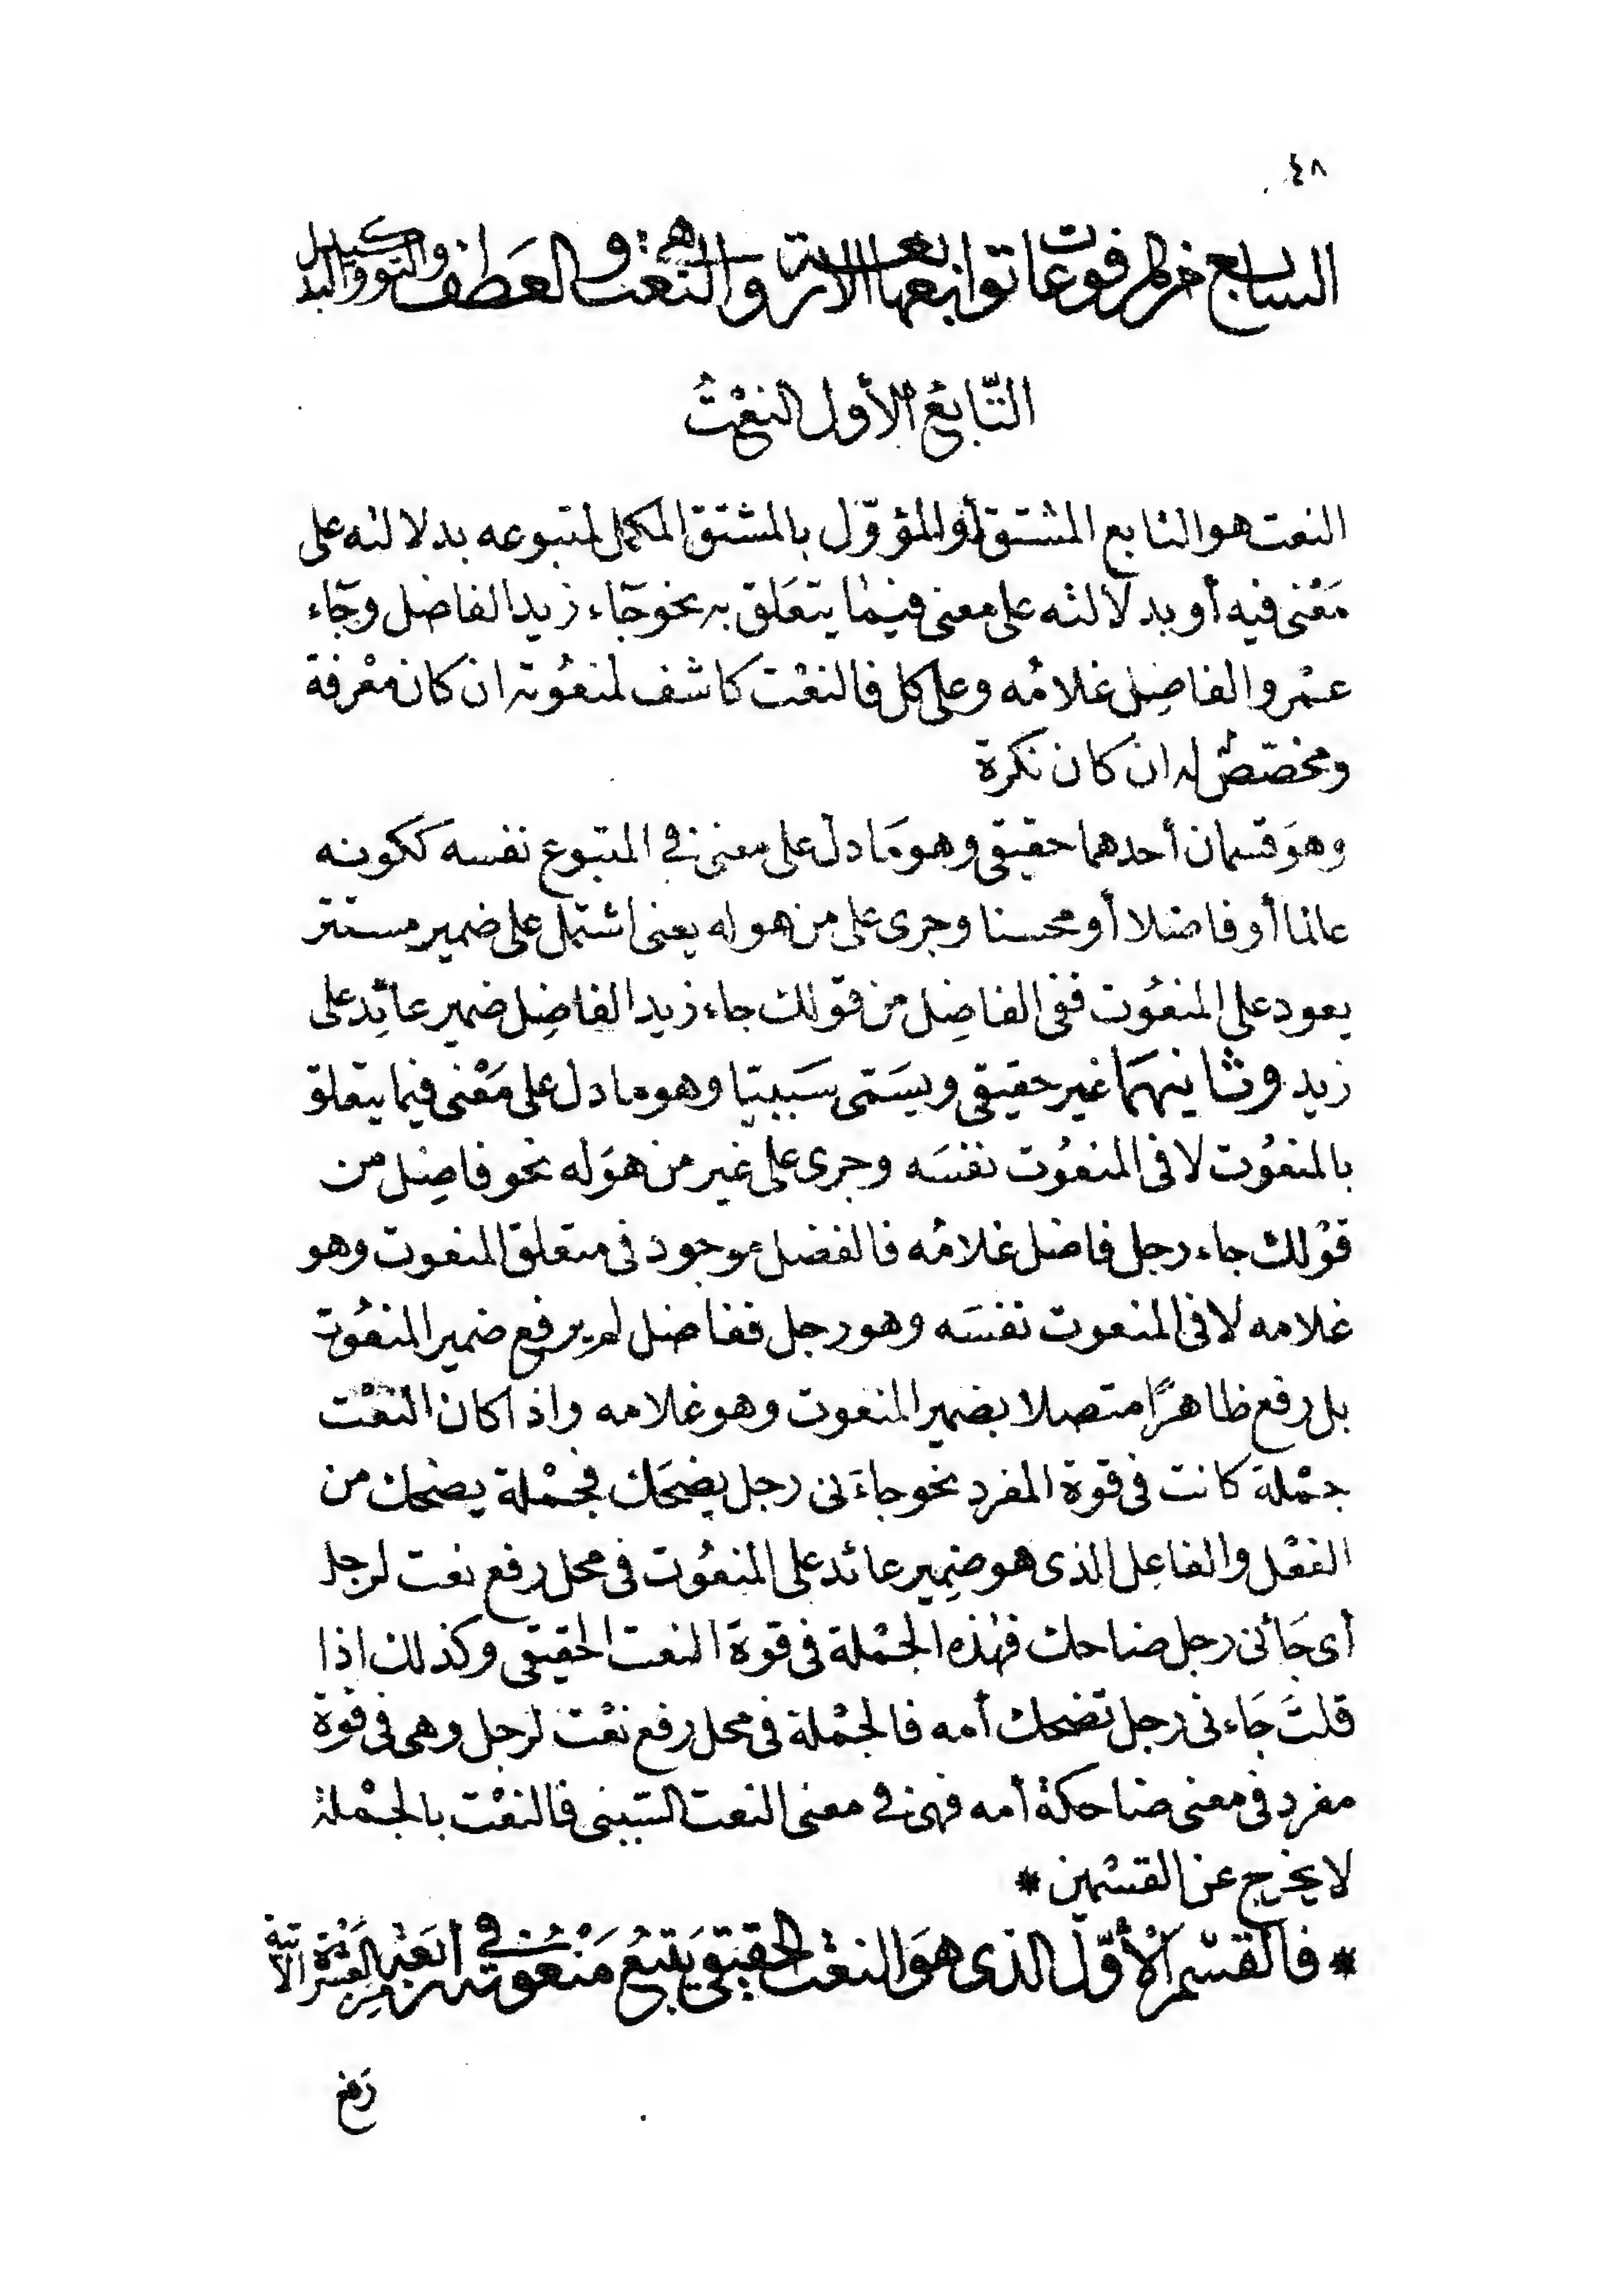 ٤٨
السابع من المرفوعات توابعها الاربعة وهي النعت والعطف والتوكيد والبدل
التّابعُ الأول النعْتُ
النعت هو التابع المشتق أو المؤوّل بالمشتق المكمل لمتبوعه بدلالته على
مَعْنى فيه أو بدلالته على معنى فيما يتعَلق به نحو جَاء زيد الفاضل وجَاء
عمْرو الفاضِل غلامُه وعلى كل فالنعْت كاشف لمنعُوته ان كان معْرفة
ومخصّصٌ له ان كان نكرة
وهوَ قسمان أحدهما حقيقى وهو مَا دل على معنى فى المتبوع نفسه ككونه
عالما أو فاضلا أو محسنا وجرى على من هو له يعنى اشتمل على ضمير مستتر
يعود على المنعُوت ففى الفاضِل من قولك جاء زيد الفاضِل ضمير عائد على
زيد وثانيهمَا غير حقيقى ويسَمى سَببيّا وهو ما دل على مَعْنى فيما يتعلق
بالمنعُوت لا فى المنعُوت نفسَه وجرى على غير من هوَ له نحو فاضِل من
قوْلك جاء رجل فاضل غلامُه فالفضل موجود فى متعلق المنعوت وهو
غلامه لا فى المنعوت نفسَه وهو رجل ففاضل لم يرفع ضمير المنعُوت
بل رفع ظاهرًا متصلا بضمير المنعوت وهو غلامه واذا كان النعْت
جمْلة كانت فى قوة المفرد نحو جاءَنى رجل يضحَك فجمْلة يضحك من
الفعْل والفاعِل الذى هو ضمِير عائد على المنعُوت فى محل رفع نعت لرجل
أى جَائنى رجل ضاحك فهذه الجمْلة فى قوة النعت الحقيقى وكذلك اذا
قلتَ جَاءنى رجل تضحك أمه فالجمْلة فى محل رفع نعْت لرجل وهى فى قوة
مفرد فى معنى ضاحكة أمه فهى فى معنى النعت السّببى فالنعْت بالجمْلة
لا يخرج عن القسْمين *
* فالقسْم الأوّل الذى هوَ النعْت الحقيقى يَتبعُ مَنْعُوته فى أربَعَة من العشرَة الآتية
رَفع